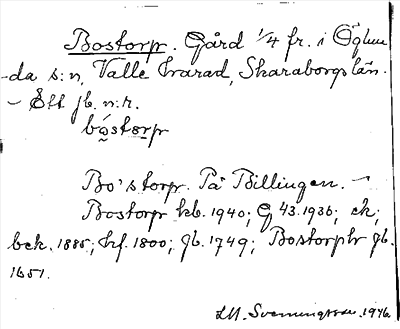 Bostorp. Gård 1/4 fr. i Öglun
-da s:n, Valle härad, Skaraborgs län.
- Ett jb. n:r.
bo̤stɔrp
Bo'storp. På Billingen. -
Bostorp kb. 1940; G 43. 1936; ek;
bck. 1885; hf. 1800; jb. 1749; Bostorph jb.
1651.
1946